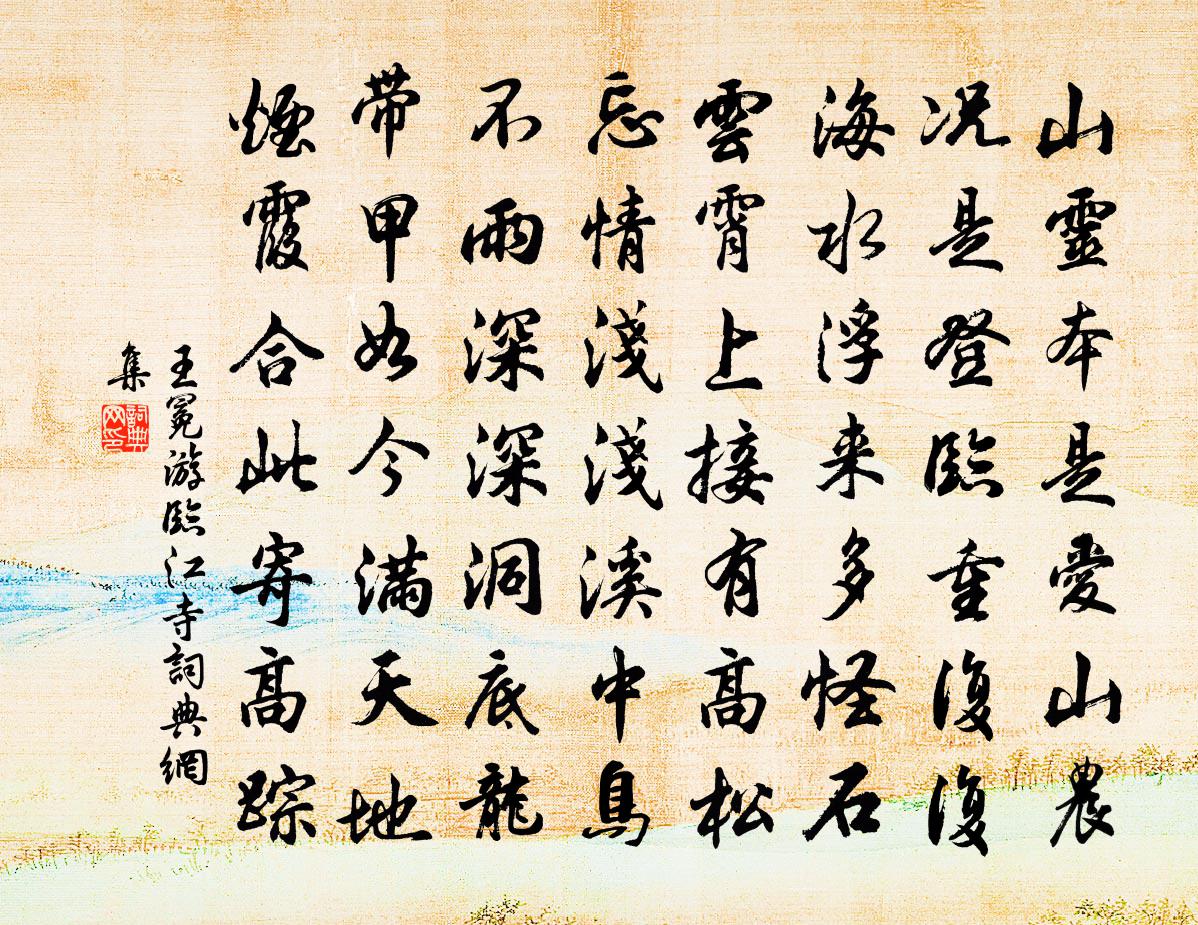 山靈本是愛山農
况是登臨重復復
海水浮来多怪石
雲霄上接有高松
忘情淺淺溪中鳥
不雨深深洞底龍
帶甲如今滿天地
煙霞合此寄高踪
王冕游臨江寺詞典網
集
詞典网印